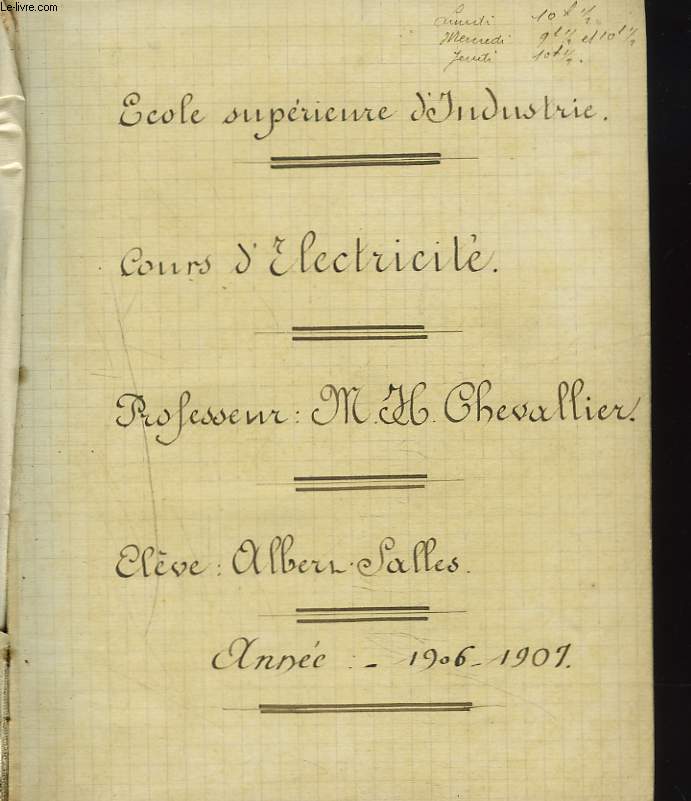 Le-livre.com
Lundi 10h 1/2
Mercredi 9h 1/2 et 10h 1/2
Jeudi 10h 1/2.
Ecole supérieure d'Industrie.
Cours d'Electricité.
Professeur: M. H. Chevallier.
Elève: Albert Salles.
Année: - 1906-1907.